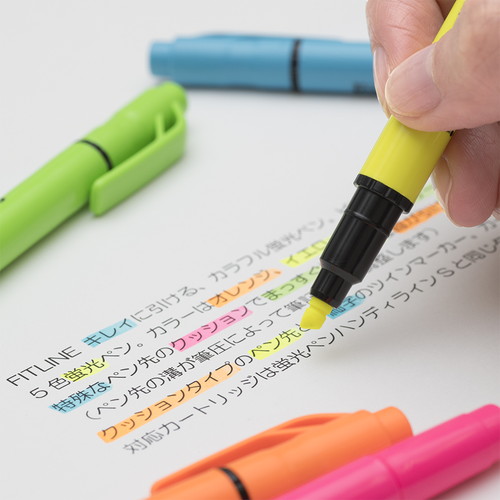 FITLINE キレイに引ける、カラフル蛍光ペン。
5色蛍光ペン。カラーはオレンジ、イエロ
特殊なペン先のクッションでまっすぐ
(ペン先の溝が筆圧によって筆記 します)
クッションタイプのペン先と 子のツインマーカー。
対応カートリッジは蛍光ペンハンディラインSと同じ